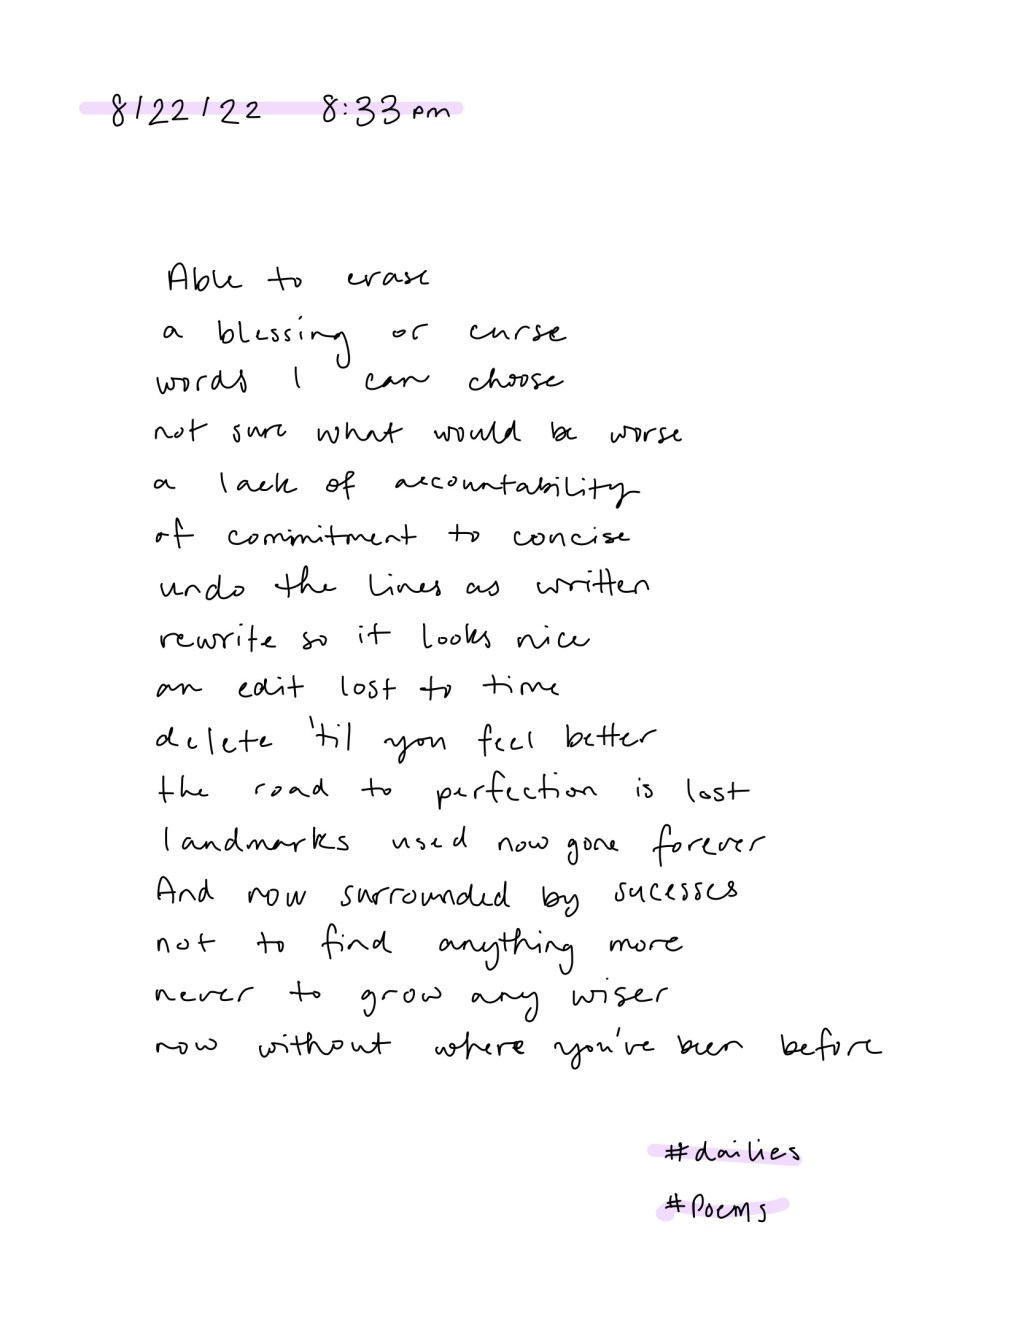 8/22/22 8:33 pm
Able to erase
a blessing or curse
words I can choose
not sure what would be worse
a lack of accountability
of commitment to concise
undo the lines as written
rewrite so it looks nice
an edit lost to time
delete 'til you feel better
the road to perfection is lost
landmarks used now gone forever
And now surrounded by sucesses
not to find anything more
never to grow any wiser
now without where you've been before
#dailies
#Poems